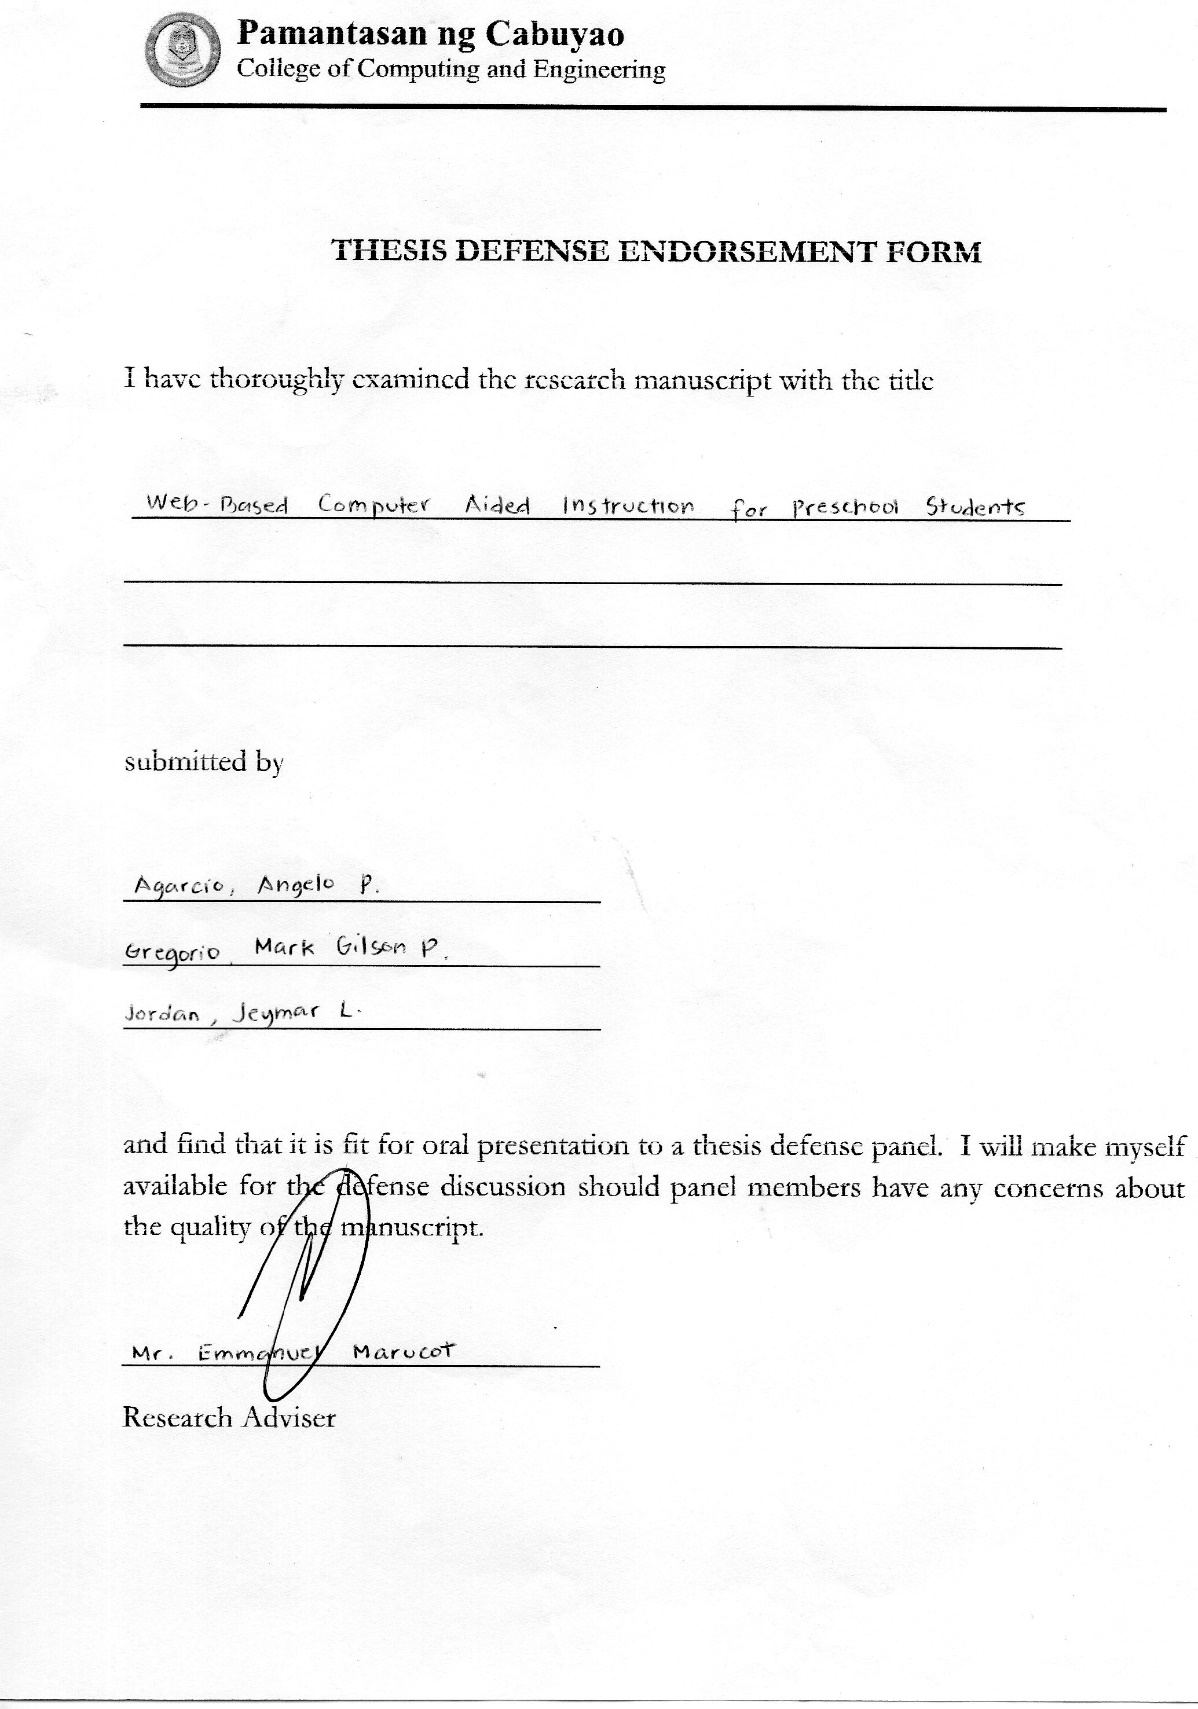 Pamantasan ng Cabuyao
College of Computing and Engineering
THESIS DEFENSE ENDORSEMENT FORM
I have thoroughly examined the research manuscript with the title
Web-Based Computer Aided Instruction for Preschool Students
submitted by
Agarcio, Angelo P.
Gregorio, Mark Gilson P.
Jordan, Jeymar L.
and find that it is fit for oral presentation to a thesis defense panel. I will make myself
available for the defense discussion should panel members have any concerns about
the quality of the manuscript.
Mr. Emmanuel Marucot
Research Adviser